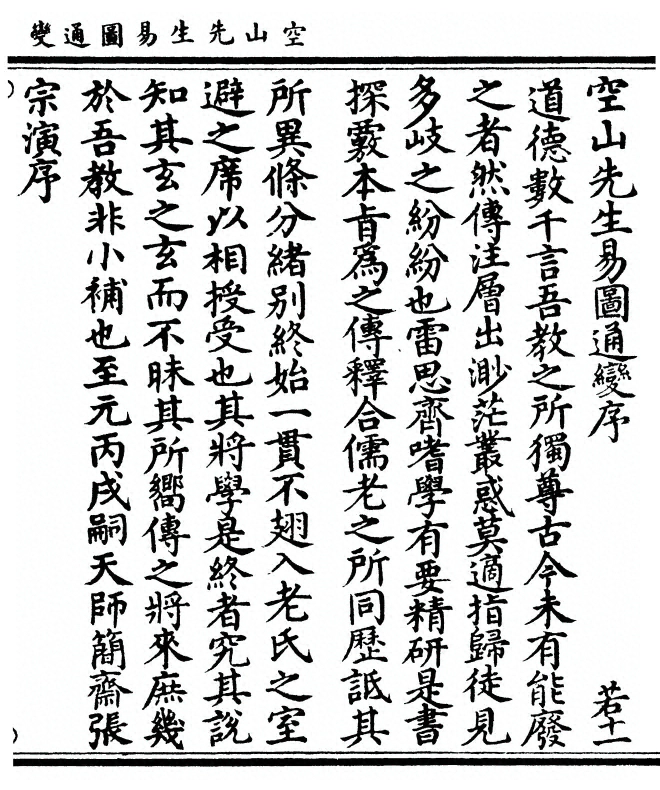 空山先生易圖通變
空山先生易圖通變序 若十一
道德數千言吾教之所獨尊古今未有能廢
之者然傳注層出渺茫叢惑莫適指歸徒見
多岐之紛紛也雷思齊嗜學有要精研是書
探覈本旨爲之傳釋合儒老之所同歷詆其
所異條分緒別終始一貫不翅入老氏之室
避之席以相授受也其將學是終者究其說
知其玄之玄而不昧其所嚮傳之將來庶幾
於吾教非小補也至元丙戌嗣天師簡齋張
宗演序